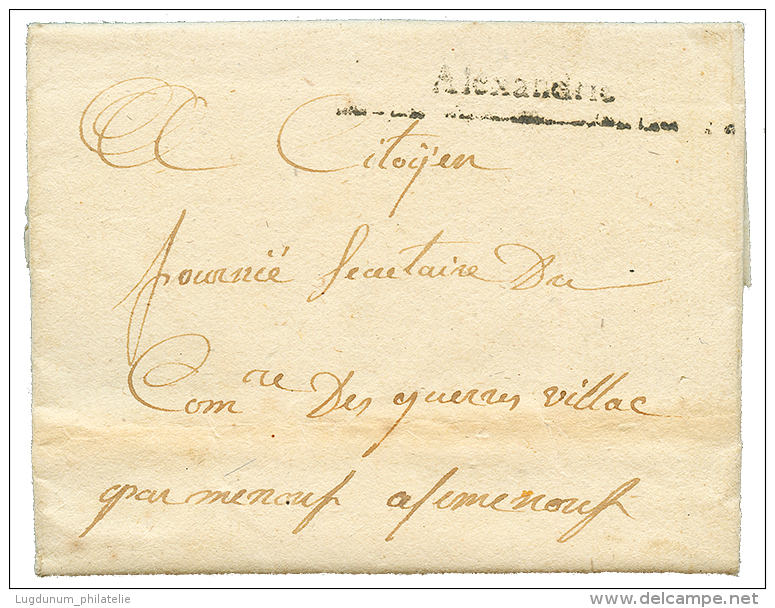 Alexandrie
Au Citoÿen
fournié Secretaire Du
Com.re Des guerres villac
par menouf a semenouf
Lugdunum_philatelie
delcampe.net